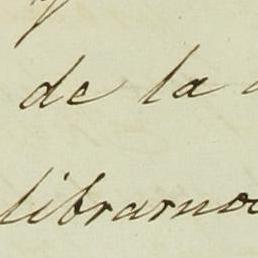 de la
librarno